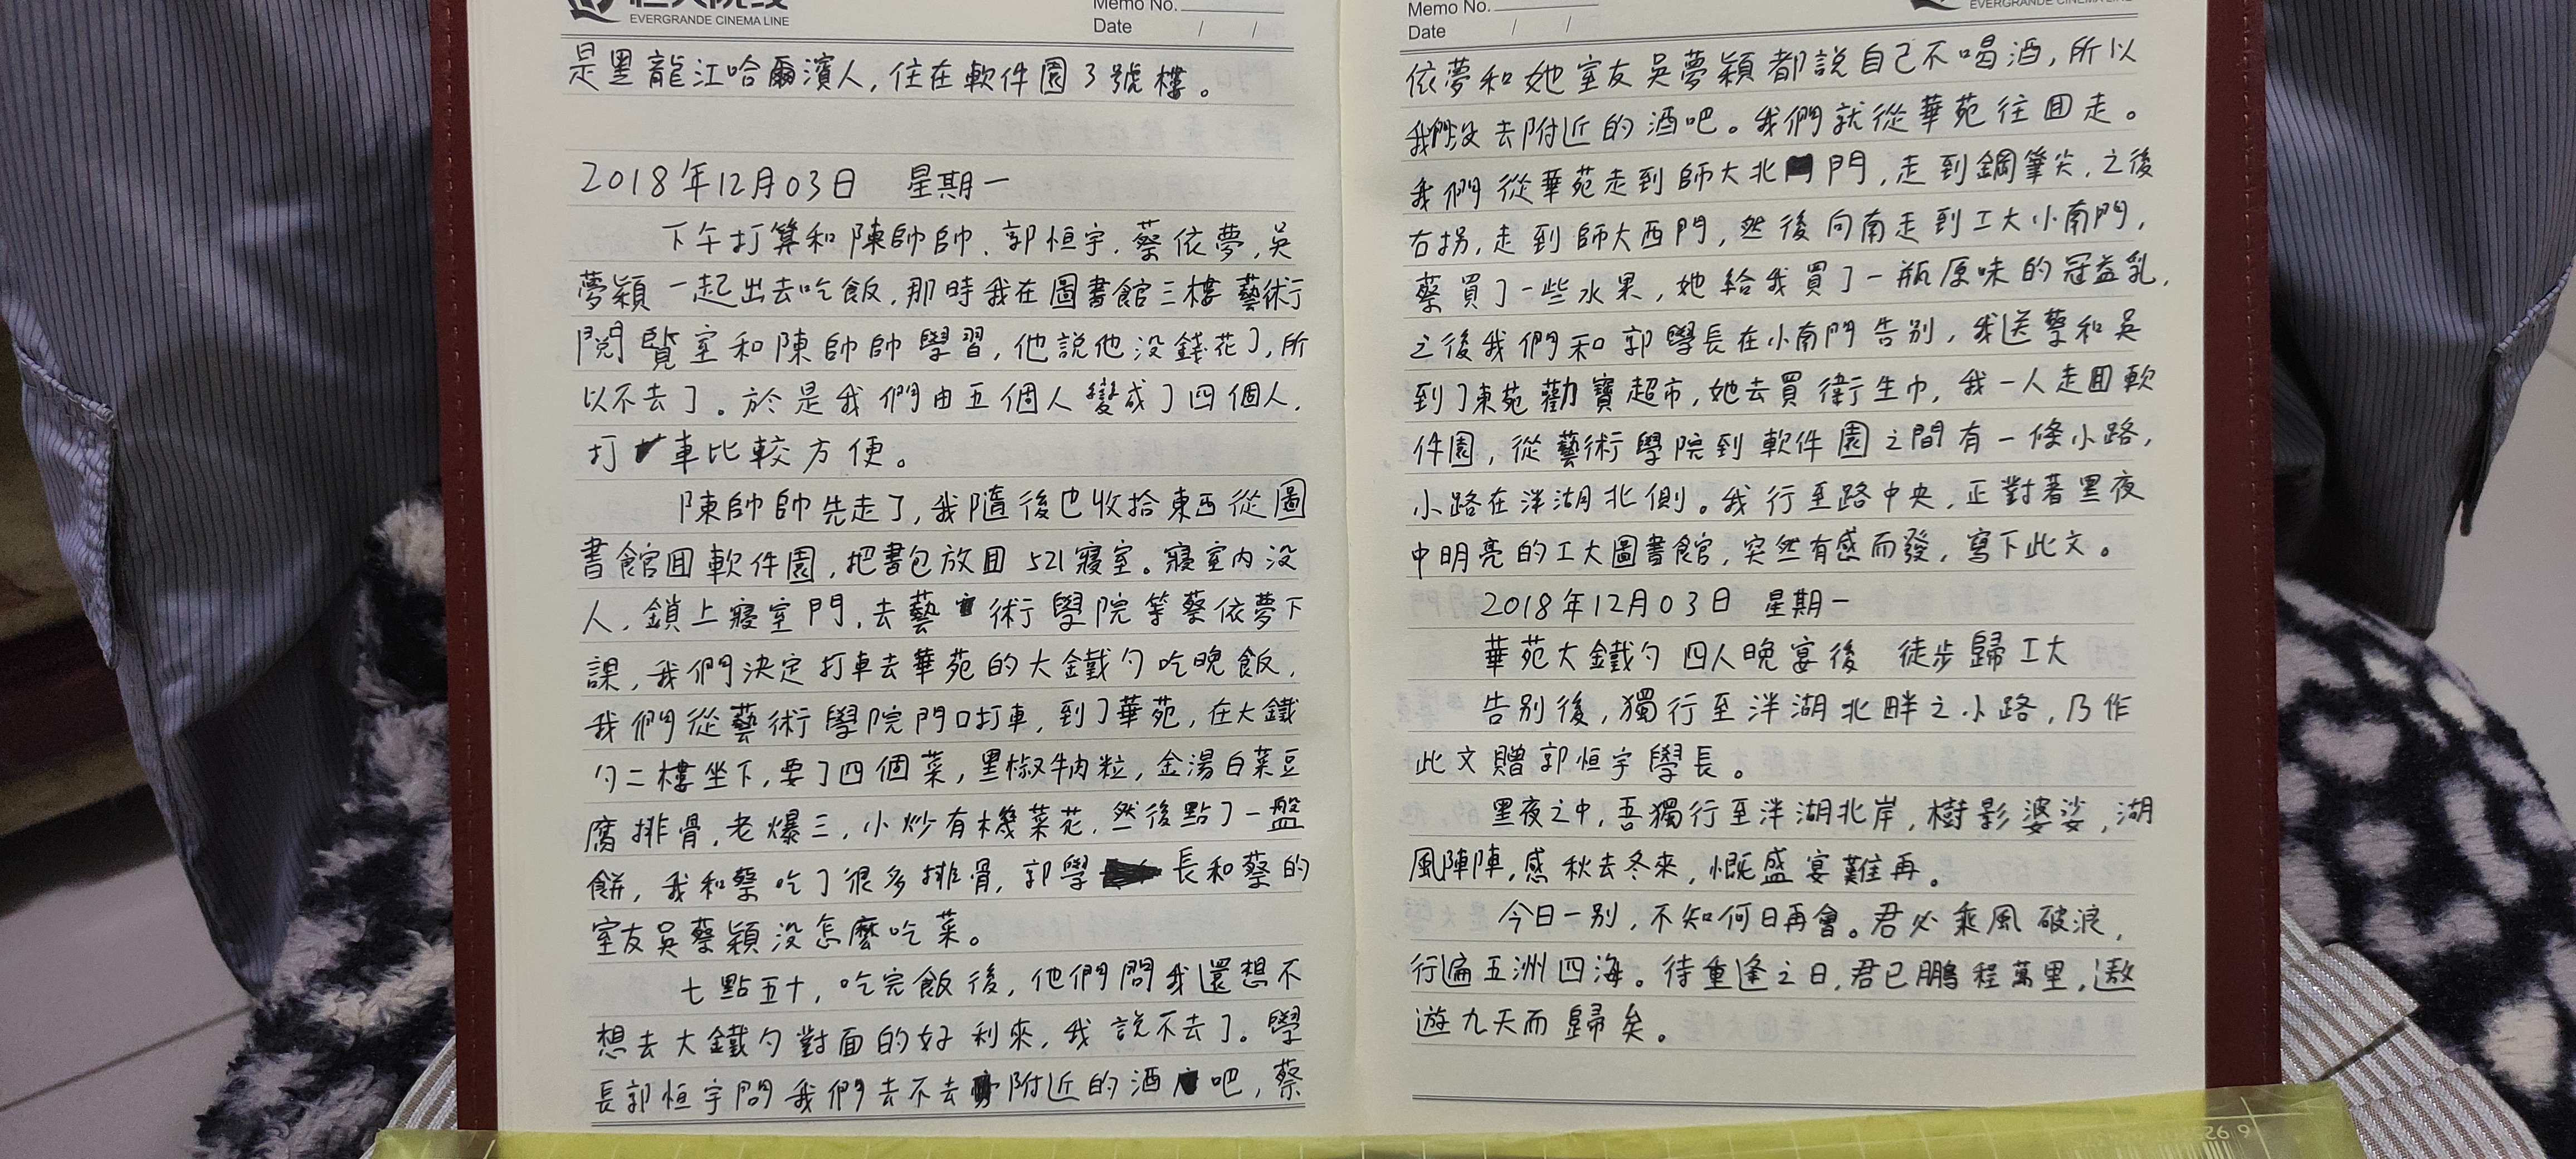 EVERGRANDE CINEMA LINE
Memo No.
Date / /
是黑龍江哈爾濱人,住在軟件園3號樓。
2018年12月03日 星期一
下午打算和陳帥帥、郭恒宇、蔡依夢,吳
夢穎一起出去吃飯,那時我在圖書館三樓藝術
閱覽室和陳帥帥學習,他說他没錢花了,所
以不去了。於是我們由五個人變成了四個人,
打車比較方便。
陳帥帥先走了,我隨後也收拾東西從圖
書館囬軟件園,把書包放囬521寢室。寢室内没
人,鎖上寢室門,去藝術學院等蔡依夢下
課,我們決定打車去華苑的大鐵勺吃晚飯,
我們從藝術學院門口打車,到了華苑,在大鐵
勺二樓坐下,要了四個菜,黑椒牛肉粒,金湯白菜豆
腐排骨,老爆三,小炒有機菜花,然後點了一盤
餅,我和蔡吃了很多排骨,郭學長和蔡的
室友吳蔡穎没怎麽吃菜。
七點五十,吃完飯後,他們問我還想不
想去大鐵勺對面的好利來,我說不去了。學
長郭恒宇問我們去不去附近的酒吧,蔡
Memo No.
Date / /
EVERGRANDE CINEMA LINE
依夢和她室友吳夢穎都說自己不喝酒,所以
我們没去附近的酒吧。我們就從華苑往囬走。
我們從華苑走到師大北門,走到鋼筆尖,之後
右拐,走到師大西門,然後向南走到工大小南門,
蔡買了一些水果,她給我買了一瓶原味的冠益乳,
之後我們和郭學長在小南門告别,我送蔡和吳
到了東苑勸寶超市,她去買衛生巾,我一人走囬軟
件園,從藝術學院到軟件園之間有一條小路,
小路在泮湖北側。我行至路中央,正對著黑夜
中明亮的工大圖書館,突然有感而發,寫下此文。
2018年12月03日 星期一
華苑大鐵勺四人晚宴後 徒步歸工大
告别後,獨行至泮湖北畔之小路,乃作
此文贈郭恒宇學長。
黑夜之中,吾獨行至泮湖北岸,樹影婆娑,湖
風陣陣,感秋去冬來,慨盛宴難再。
今日一别,不知何日再會。君必乘風破浪,
行遍五洲四海。待重逢之日,君已鵬程萬里,遨
遊九天而歸矣。
26 9